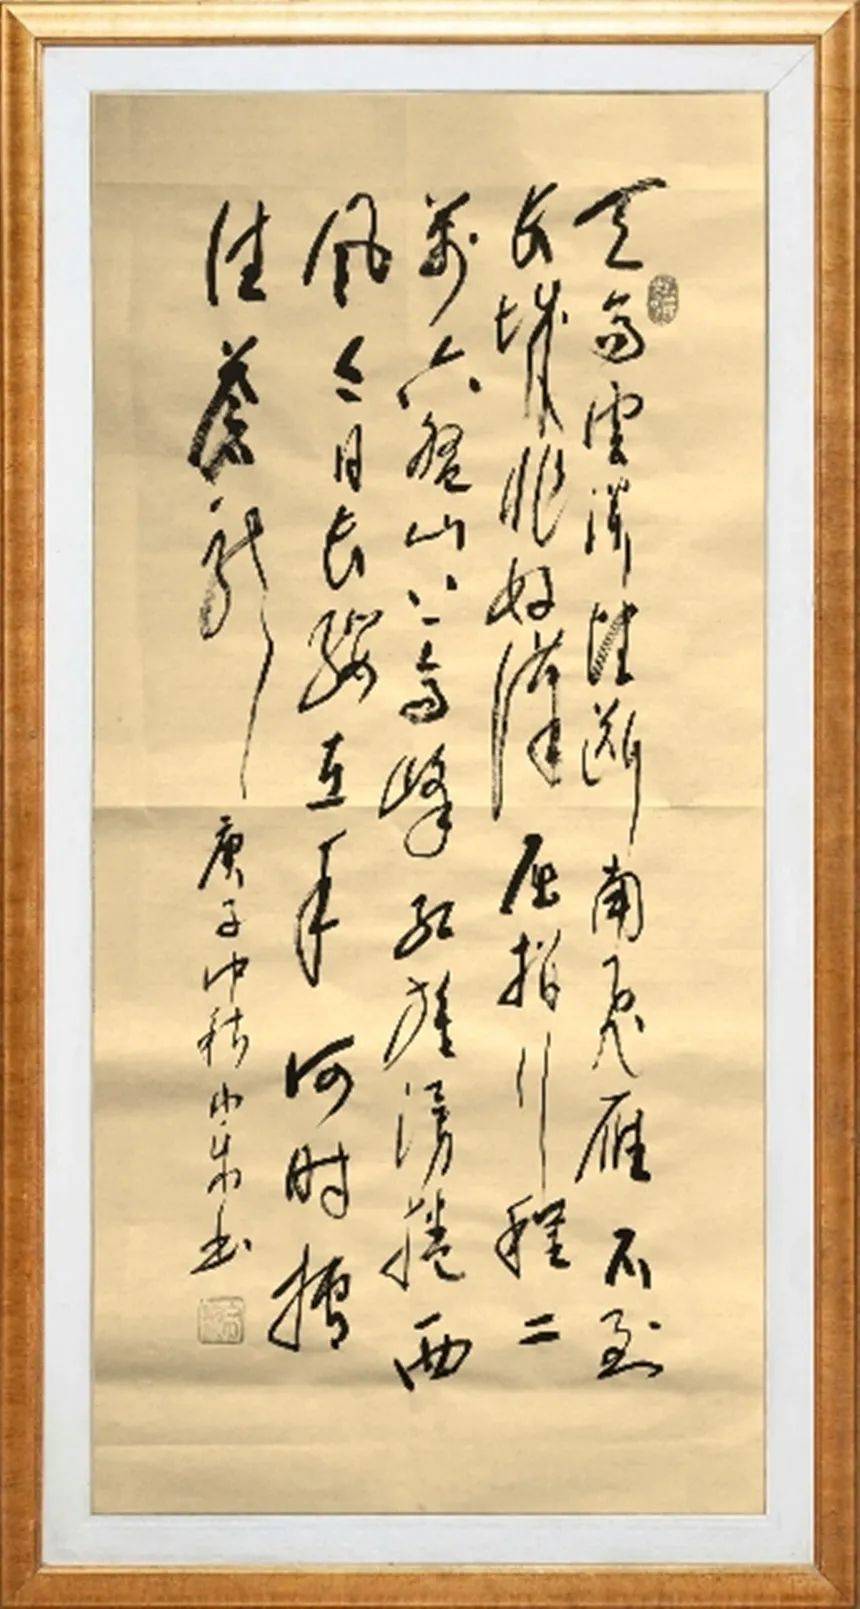 天高雲淡望斷南飛雁不到
长城非好漢屈指行程二
萬六盤山上高峰紅旗漫捲西
風今日长纓在手何时縛
住蒼龍
庚子仲秋 书